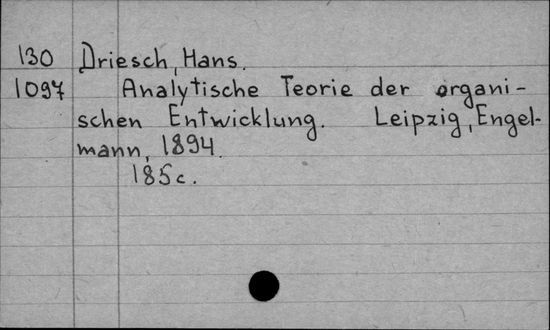 130 Driesch, Hans.
1097 Analytische Teorie der organi-
schen Entwicklung. Leipzig, Engel-
mann, 1894.
185 c.